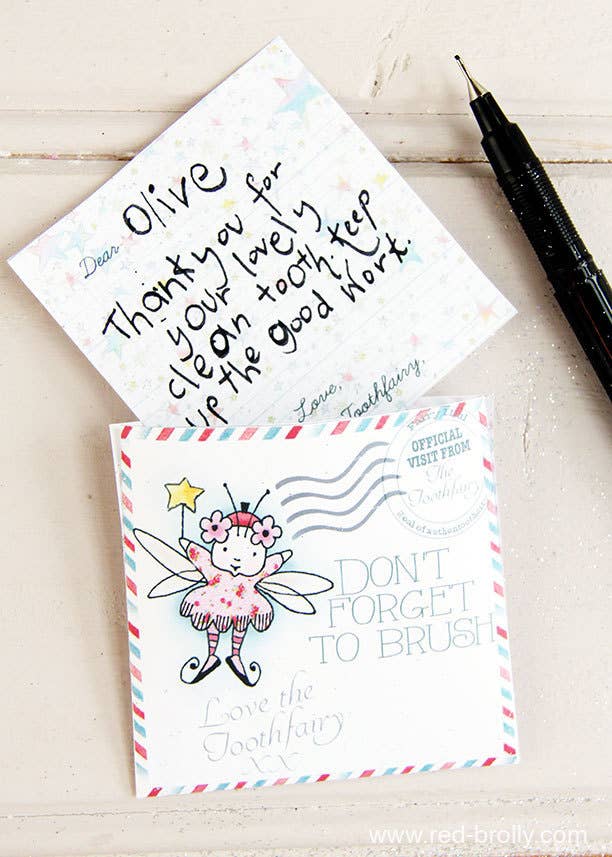 Dear Olive
Thankyou for
your lovely
clean tooth. Keep
up the good work.
Love,
Toothfairy,
OFFICIAL
VISIT FROM
The
Toothfairy
DON'T
FORGET
TO BRUSH
Love the
Toothfairy
XX
www.red-brolly.com